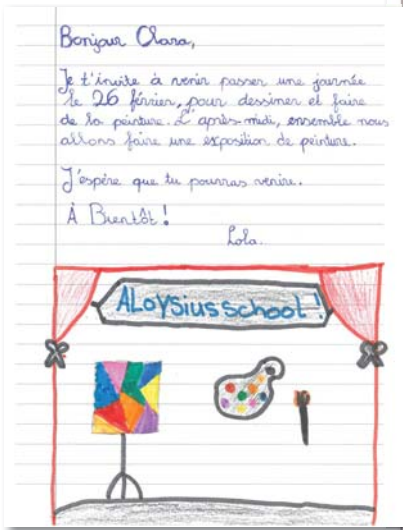 Bonjour Clara,
Je t'invite à venir passer une journée
le 26 février, pour dessiner et faire
de la peinture. L'après-midi, ensemble nous
allons faire une exposition de peinture.
J'espère que tu pourras venire.
À Bientôt !
Lola.
ALOYSIUS school !